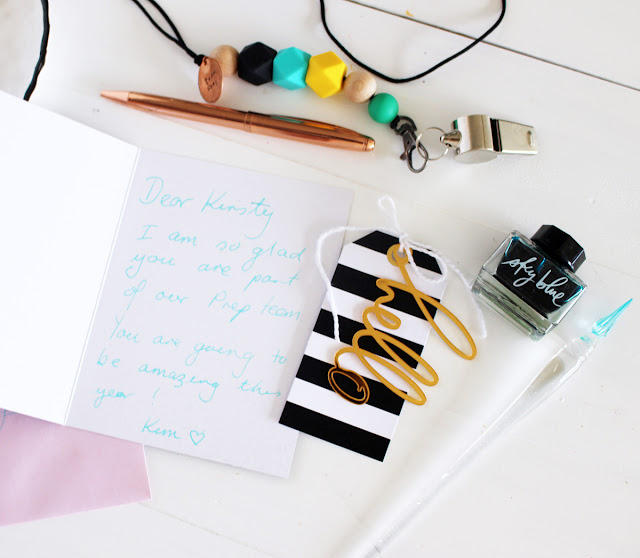 Dear Kirsty
I am so glad
you are part
of our Prep team
You are going to
be amazing this
year !
Kim ♡
hello
sky blue